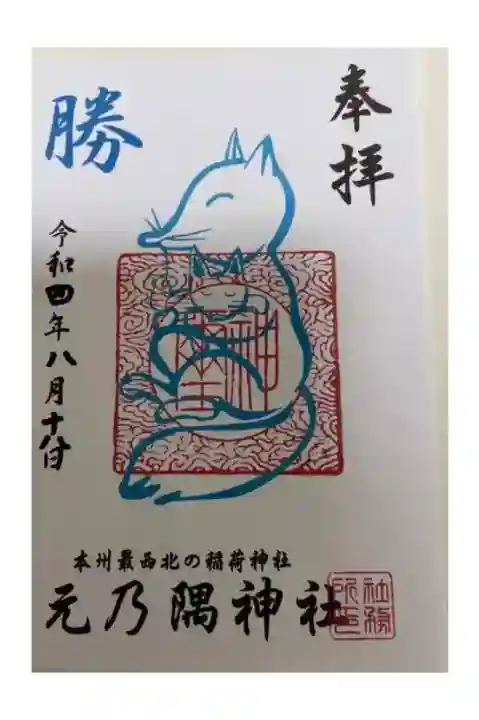 奉拝
勝
令和四年八月十八日
本州最西北の稲荷神社
元乃隅神社
社務所印